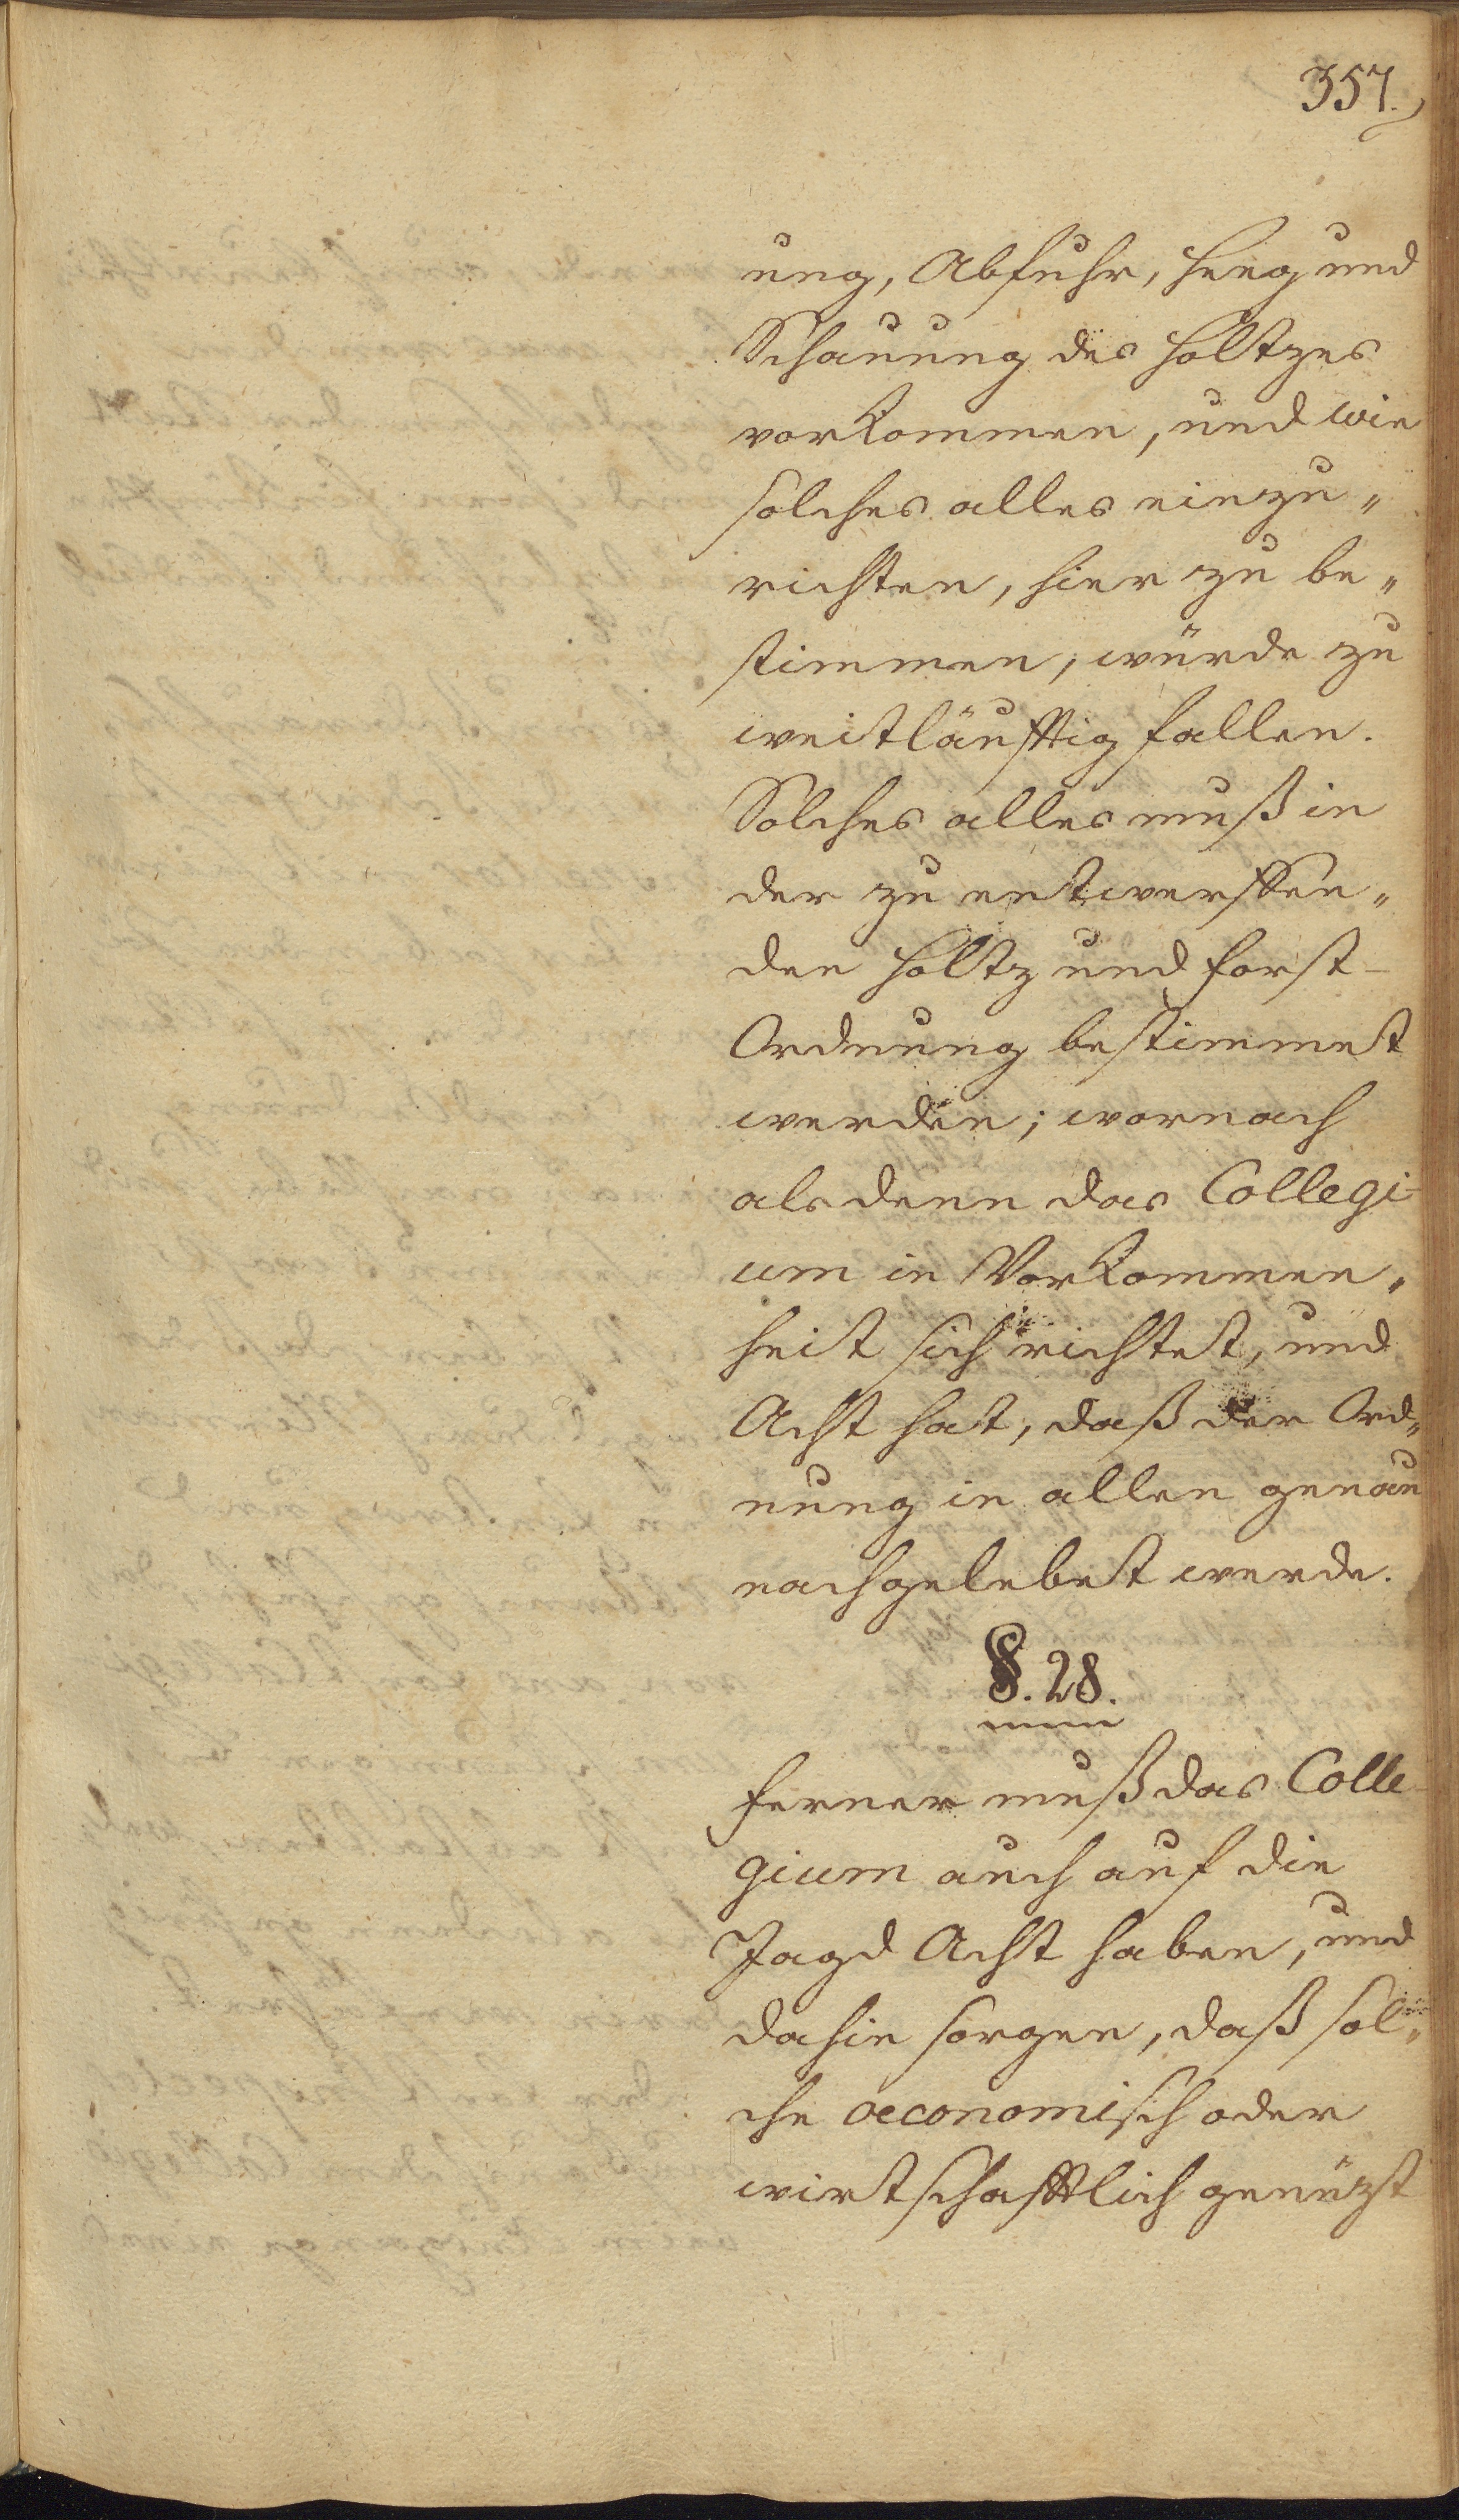 357.
ung, Abfuhr, Heeg und
Schauung des Holtzes
vorkommen, und wie
solches alles einzu„
richten, hier zu be„
stimmen, würde zu
weitläufftig fallen.
Solches alles muß in
der zu entwerffen„
den Holtz und Forst-
Ordnung bestimmet
werden; wornach
alsdenn das Collegi-
um in Vorkommen„
heit sich richtet, und
Acht hat, daß der Ord„
nung in allen genau
nachgelebet werde.
§. 28.
Ferner muß das Colle-
gium auch auf die
Jagd Acht haben, und
dahin sorgen, daß sol„
che oeconomisch oder
wirtschafftlich genüzt